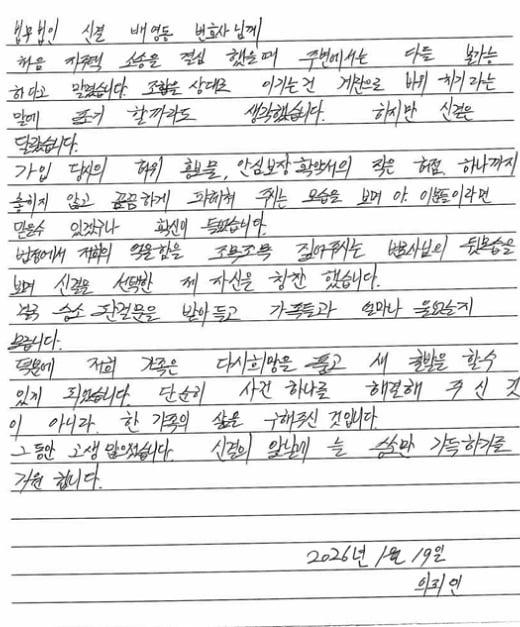 법무법인 신결 배영동 변호사님께
처음 지주택 소송을 결심 했을때 주변에서는 다들 불가능
하다고 말렸습니다. 조합을 상대로 이기는건 계란으로 바위 치기라는
말에 포기 할까라도 생각했습니다. 하지만 신결은
달랐습니다.
가입 당시의 허위 홍보물, 안심보장확약서의 작은 허점 하나까지
놓치지 않고 꼼꼼하게 파헤쳐 주시는 모습을 보며 아 이분들이라면
믿을수 있겠구나 확신이 들었습니다.
법정에서 저희의 억울함을 조목조목 짚어주시는 변호사님의 뒷모습을
보며 신결을 선택한 제 자신을 칭찬 했습니다.
결국 승소 판결문을 받아 들고 가족들과 얼마나 울었는지
모릅니다.
덕분에 저희 가족은 다시희망을 품고 새 출발을 할수
있게 되었습니다. 단순히 사건 하나를 해결해 주신 것
이 아니라. 한 가족의 삶을 구해주신 것입니다.
그동안 고생 많으셨습니다. 신결의 앞날에 늘 승소만 가득하기를
기원 합니다.
2026년 1월 19일
의뢰인